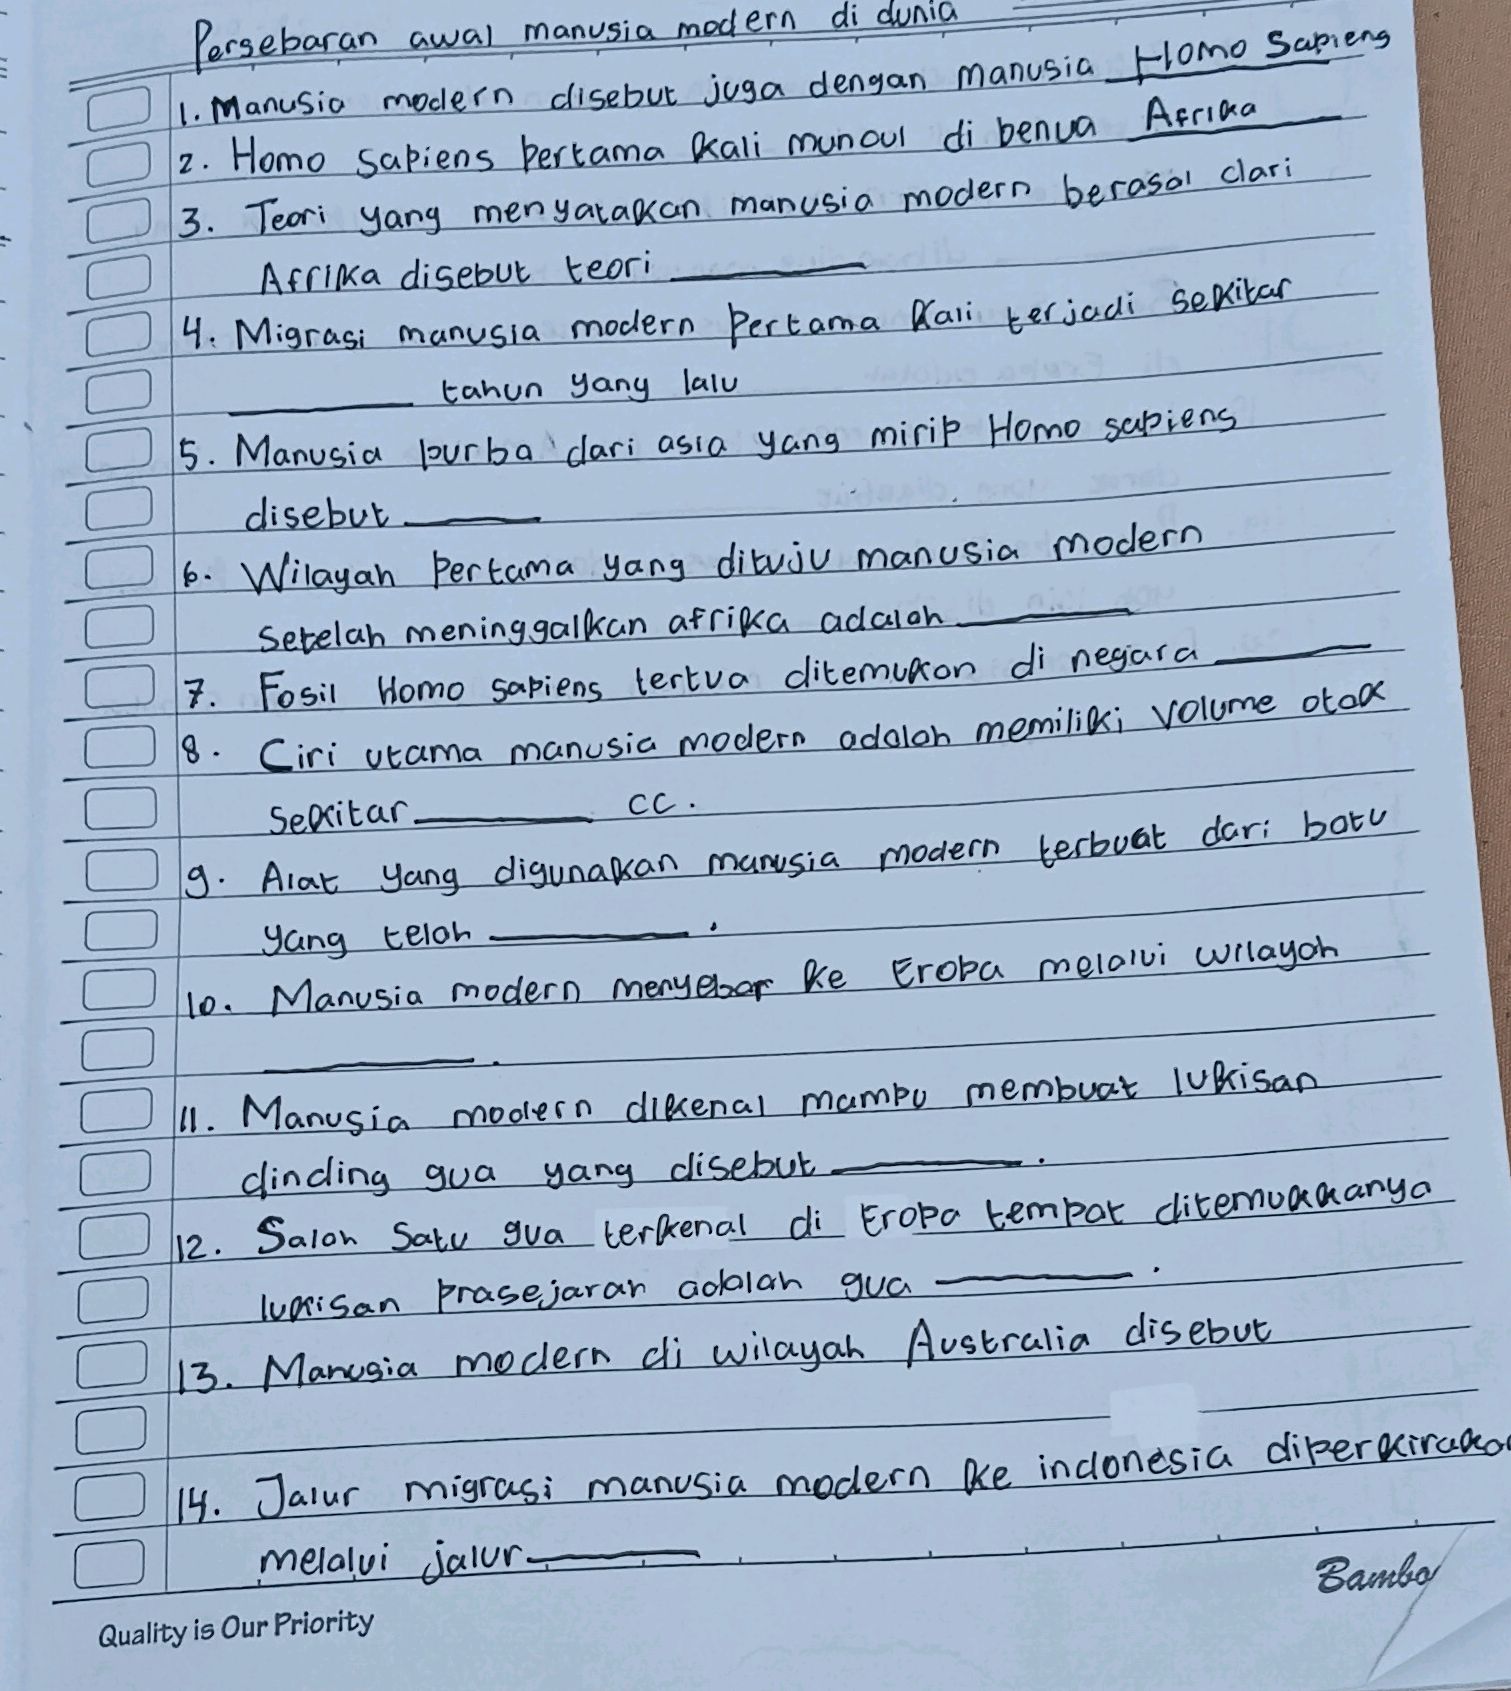 Persebaran awal manusia modern di dunia
1. Manusia modern disebut juga dengan manusia Homo Sapiens
2. Homo sapiens pertama kali muncul di benua Afrika
3. Teori yang menyatakan manusia modern berasal dari
Afrika disebut teori ______
4. Migrasi manusia modern pertama kali terjadi sekitar
______ tahun yang lalu
5. Manusia purba dari asia yang mirip Homo sapiens
disebut ______
6. Wilayah pertama yang dituju manusia modern
setelah meninggalkan afrika adalah ______
7. Fosil Homo sapiens tertua ditemukan di negara ______
8. Ciri utama manusia modern adalah memiliki volume otak
sekitar ______ cc.
9. Alat yang digunakan manusia modern terbuat dari batu
yang telah ______.
10. Manusia modern menyebar ke Eropa melalui wilayah
______.
11. Manusia modern dikenal mampu membuat lukisan
dinding gua yang disebut ______.
12. Salah satu gua terkenal di Eropa tempat ditemukkanya
lukisan prasejarah adalah gua ______.
13. Manusia modern di wilayah Australia disebut
14. Jalur migrasi manusia modern ke indonesia diperkirakan
melalui jalur ______
Bambo
Quality is Our Priority